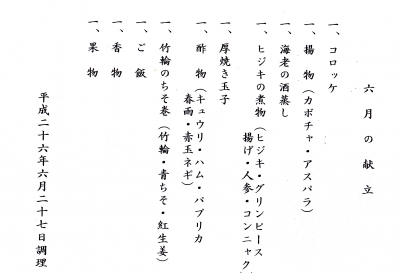 六月の献立
一、コロッケ
一、揚物（カボチャ・アスパラ）
一、海老の酒蒸し
一、ヒジキの煮物（ヒジキ・グリンピース
揚げ・人参・コンニャク
一、厚焼き玉子
一、酢物（キュウリ・ハム・パプリカ
春雨・赤玉ネギ）
一、竹輪のちそ巻（竹輪・青ちそ・紅生姜）
一、ご飯
一、香物
一、果物
平成二十六年六月二十七日調理